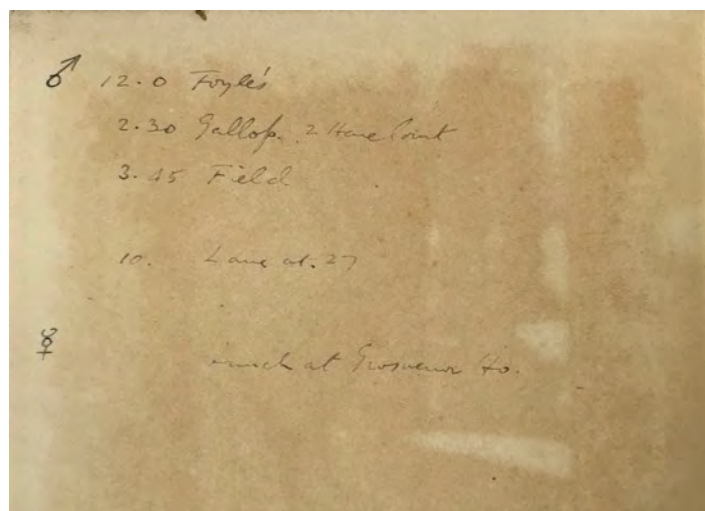 ♂ 12.0 Foyle's
2.30 Gallop. 2 Hare Court
3.45 Field
10. Lane at. 27
☿ at Grosvenor Ho.